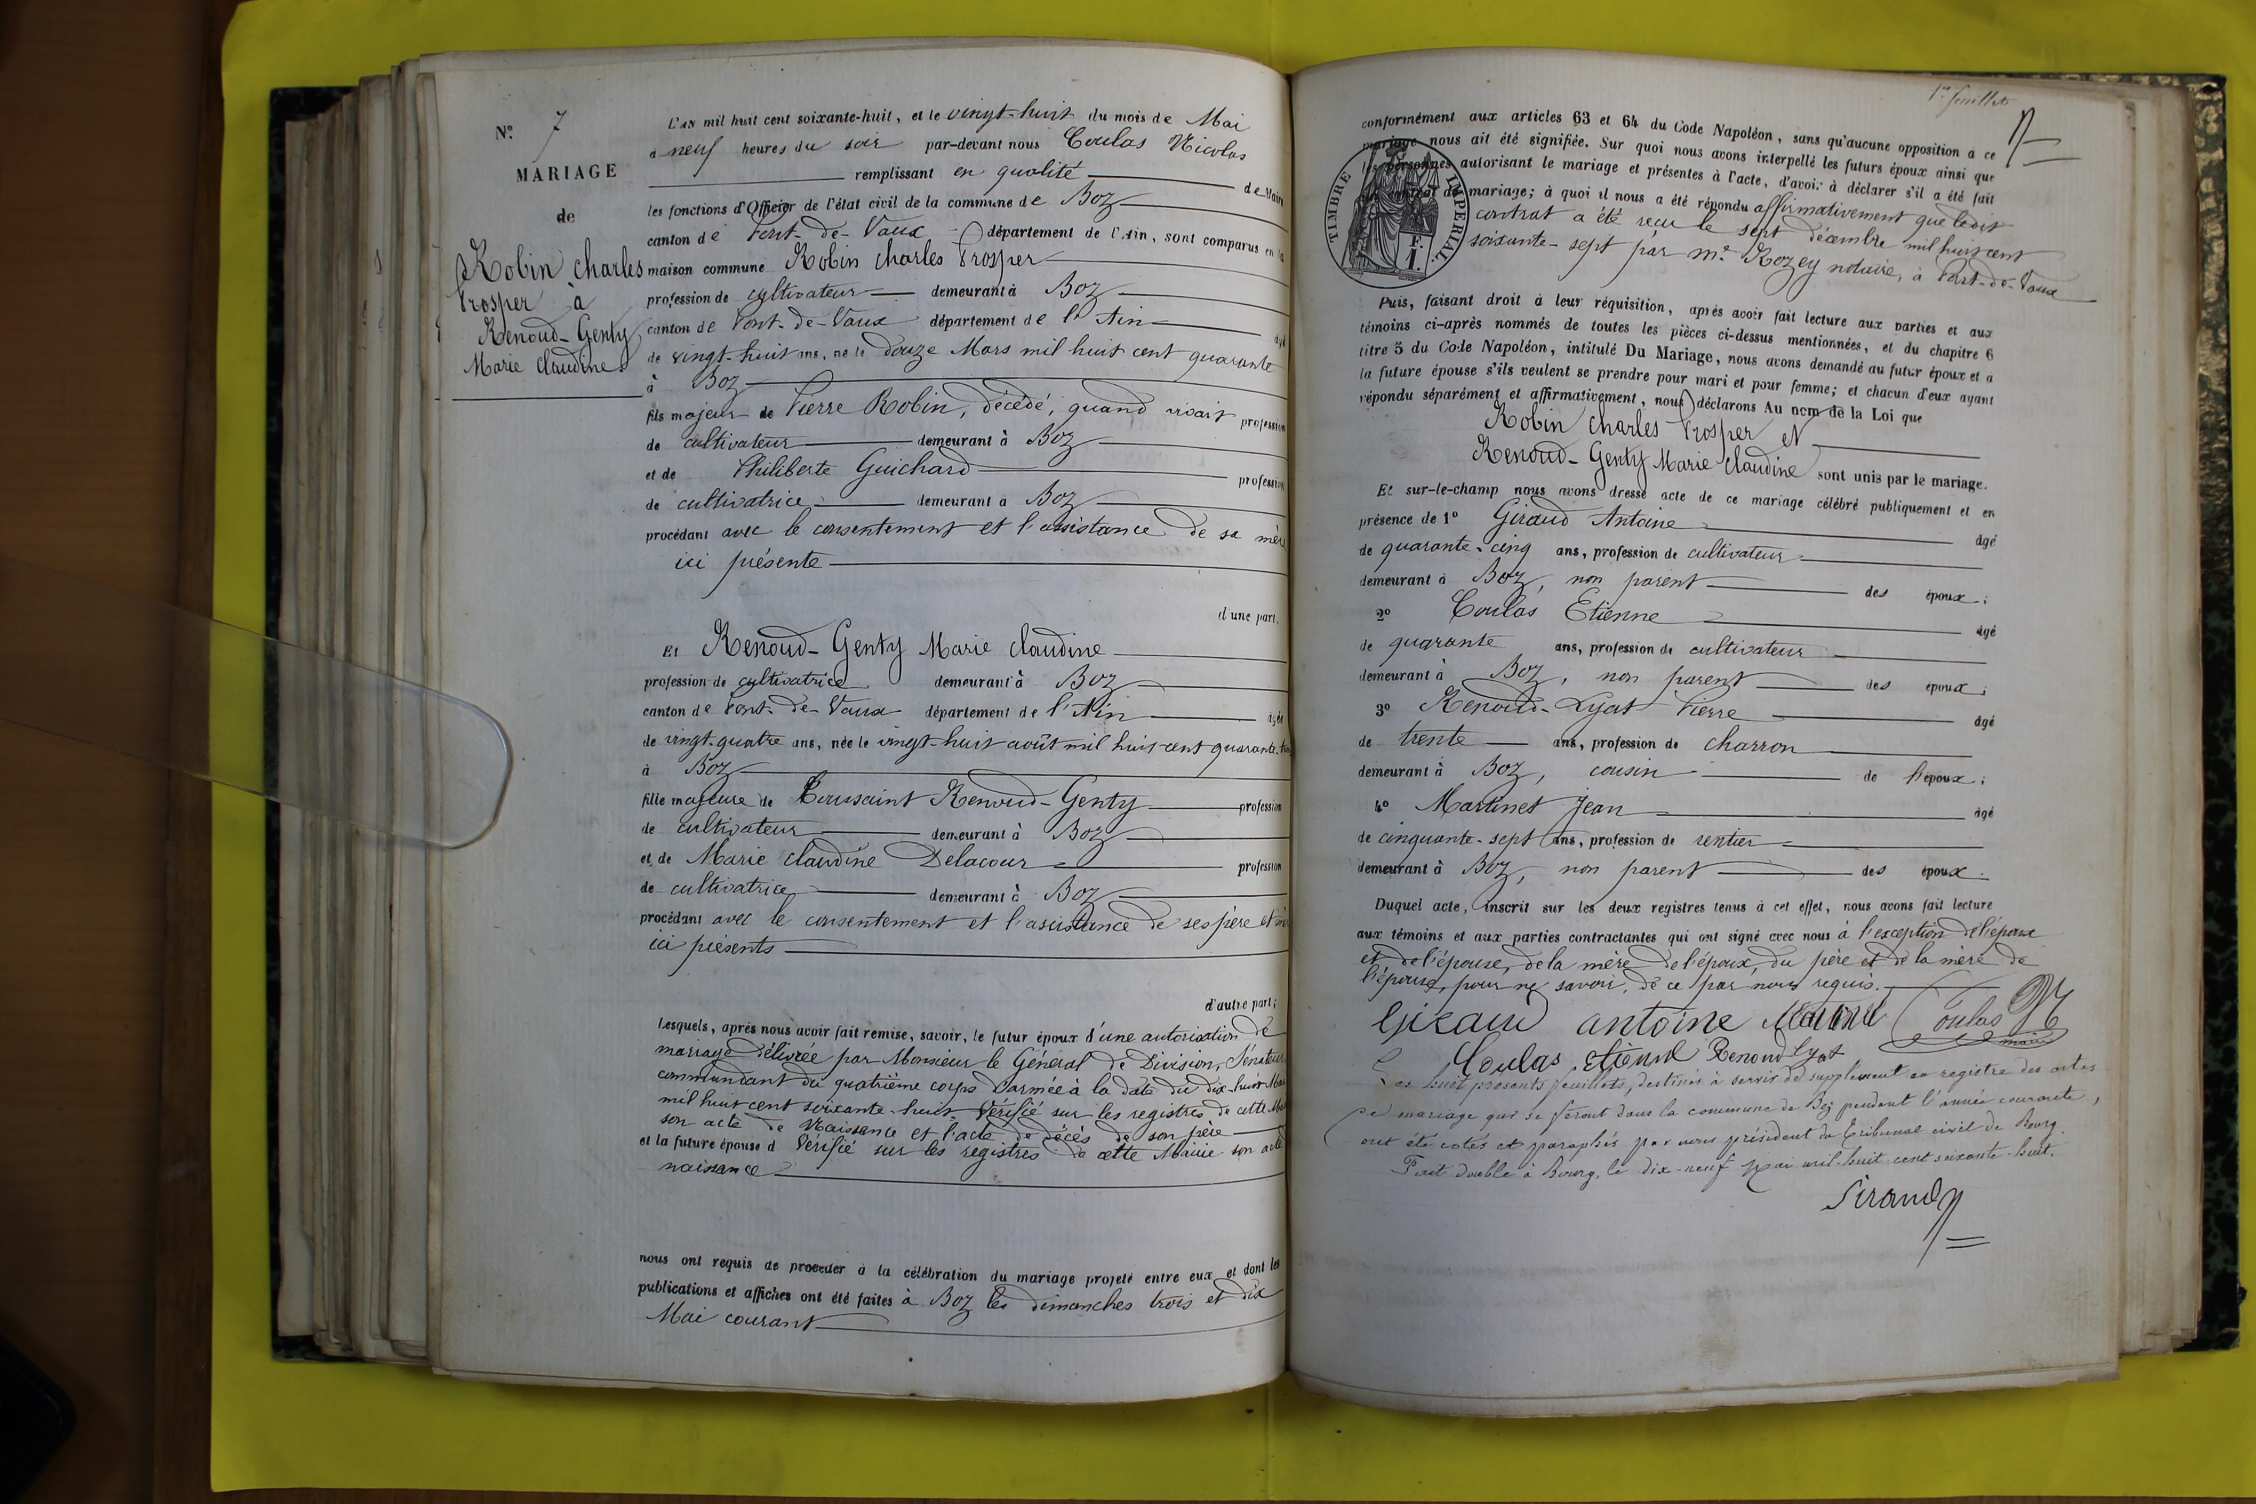 N.º 7
MARIAGE
de
Robin Charles
Prosper à
Renoud-Genty
Marie Claudine
L'AN mil huit cent soixante-huit, et le vingt-huit du mois de Mai
à neuf heures du soir par-devant nous Coulas Nicolas
remplissant en qualité de Maire
les fonctions d'Officier de l'état civil de la commune de Boz
canton de Pont-de-Vaux département de l'Ain, sont comparus en la
maison commune Robin Charles Prosper
profession de cultivateur demeurant à Boz
canton de Pont-de-Vaux département de l'Ain âgé
de vingt-huit ans, né le douze Mars mil huit cent quarante
à Boz
fils majeur de Pierre Robin, décédé, quand vivait profession
de cultivateur demeurant à Boz
et de Philiberte Guichard profession
de cultivatrice demeurant à Boz
procédant avec le consentement et l'assistance de sa mère
ici présente
d'une part.
Et Renoud-Genty Marie Claudine
profession de cultivatrice demeurant à Boz
canton de Pont-de-Vaux département de l'Ain âgée
de vingt-quatre ans, née le vingt-huit août mil huit cent quarante-
à Boz
fille majeure de Toussaint Renoud-Genty profession
de cultivateur demeurant à Boz
et de Marie Claudine Delacour profession
de cultivatrice demeurant à Boz
procédant avec le consentement et l'assistance de ses père et
ici présents
d'autre part;
Lesquels, après nous avoir fait remise, savoir, le futur époux d'une autorisation de
mariage délivrée par Monsieur le Général de Division, Sénateur
commandant du quatrième corps d'armée à la date du dix-huit Mai
mil huit cent soixante-huit Vérifié sur les registres de cette
son acte de Naissance et l'acte de décès de son père
et la future épouse d Vérifié sur les registres de cette Mairie son acte
naissance
nous ont requis de procéder à la célébration du mariage projeté entre eux et dont les
publications et affiches ont été faites à Boz les dimanches trois et dix
Mai courant
1er feuillet
conformément aux articles 63 et 64 du Code Napoléon, sans qu'aucune opposition à ce
mariage nous ait été signifiée. Sur quoi nous avons interpellé les futurs époux ainsi que
les personnes autorisant le mariage et présentes à l'acte, d'avoir à déclarer s'il a été fait
un contrat de mariage; à quoi il nous a été répondu affirmativement que ledit
contrat a été reçu le sept décembre mil huit cent
soixante-sept par Me Rozey notaire, à Pont-de-Vaux
TIMBRE IMPÉRIAL
F.
1.
Puis, faisant droit à leur réquisition, après avoir fait lecture aux parties et aux
témoins ci-après nommés de toutes les pièces ci-dessus mentionnées, et du chapitre 6
titre 5 du Code Napoléon, intitulé Du Mariage, nous avons demandé au futur époux et a
la future épouse s'ils veulent se prendre pour mari et pour femme; et chacun d'eux ayant
répondu séparément et affirmativement, nous déclarons Au nom de la Loi que
Robin Charles Prosper et
Renoud-Genty Marie Claudine sont unis par le mariage.
Et sur-le-champ nous avons dressé acte de ce mariage célébré publiquement et en
présence de 1º Giraud Antoine âgé
de quarante-cinq ans, profession de cultivateur
demeurant à Boz, non parent des époux;
2º Coulas Etienne âgé
de quarante ans, profession de cultivateur
demeurant à Boz, non parent des époux;
3º Renoud-Lyat Pierre âgé
de trente ans, profession de charron
demeurant à Boz, cousin de l'époux;
4º Martinet Jean âgé
de cinquante-sept ans, profession de rentier
demeurant à Boz, non parent des époux.
Duquel acte, inscrit sur les deux registres tenus à cet effet, nous avons fait lecture
aux témoins et aux parties contractantes qui ont signé avec nous à l'exception de l'époux
et de l'épouse, de la mère de l'époux, du père et de la mère de
l'épouse, pour ne savoir, de ce par nous requis.
Giraud antoine Coulas
maire
Coulas etienne Renoud Lyat
Les huit présents feuillets, destinés à servir de supplément au registre des actes
de mariage qui se feront dans la commune de Boz pendant l'année courante,
ont été cotés et paraphés par nous président du Tribunal civil de Bourg.
Fait double à Bourg, le dix-neuf mai mil huit cent soixante-huit.